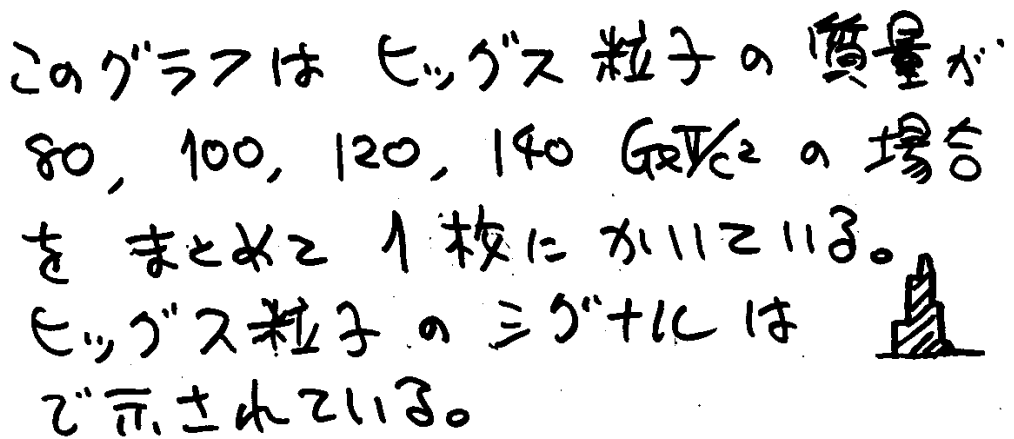 このグラフは ヒッグス粒子の質量が
80, 100, 120, 140 GeV/c2 の場合
を まとめて 1枚に かいている。
ヒッグス粒子の シグナルは
で示されている。